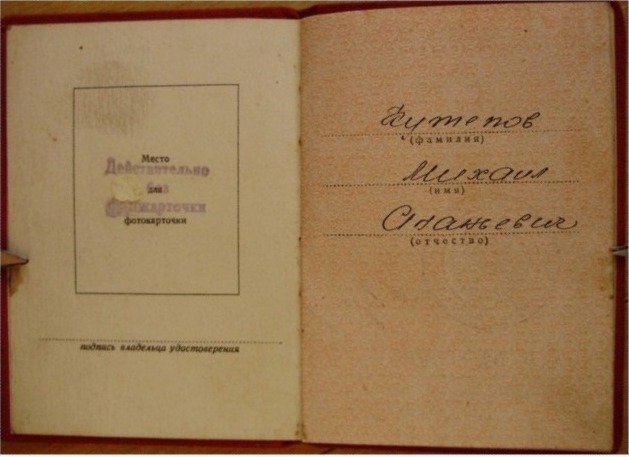 Место
Действительно
без
для
фотокарточки
фотокарточки
подпись владельца удостоверения
Кутепов
(фамилия)
Михаил
(имя)
Ананьевич
(отчество)